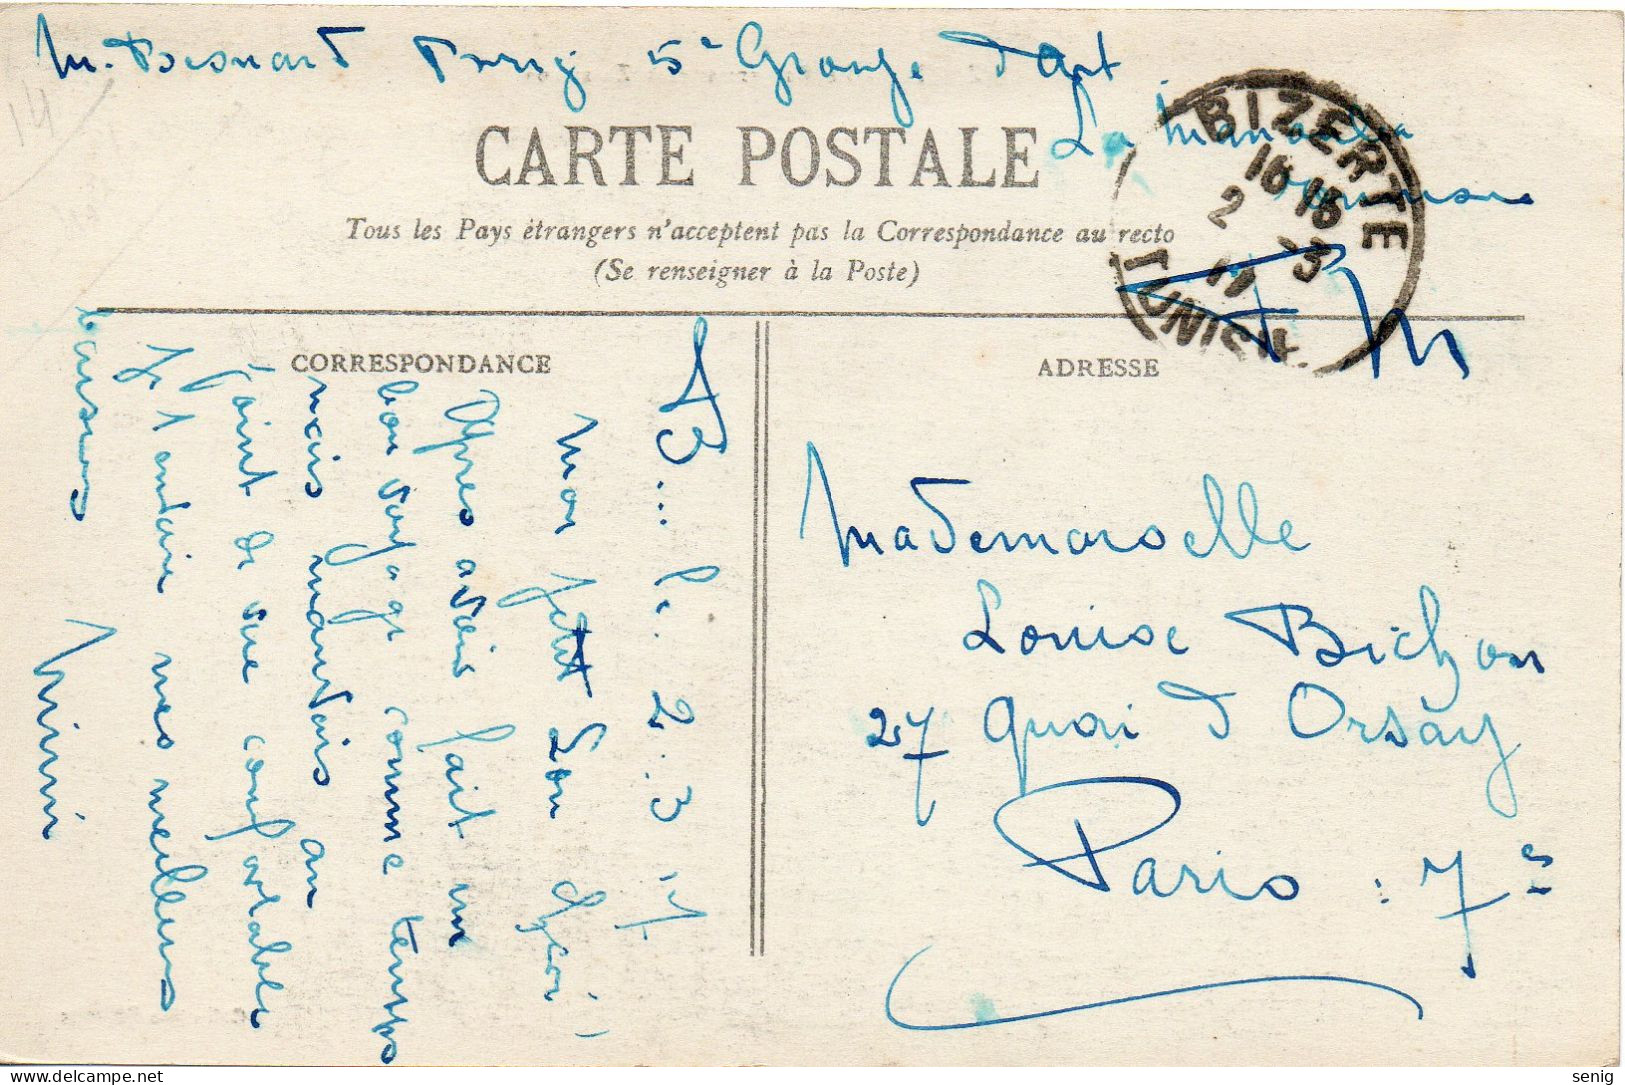 M. Besnard Brig 5e Groupe d'Art
La Manouba
CARTE POSTALE
Tous les Pays étrangers n'acceptent pas la Correspondance au recto
(Se renseigner à la Poste)
BIZERTE
16 15
2 -3
17
TUNISIE
F M
CORRESPONDANCE
ADRESSE
A... le. 2..3 17
Mon petit Lou chéri
Après avoir fait un
bon voyage comme temps
mais mauvais au
point de vue confortable
Je t'envoie mes meilleurs
baisers
Mimi
Mademoiselle
Louise Bichon
27 Quai d'Orsay
Paris : 7e
14
senig